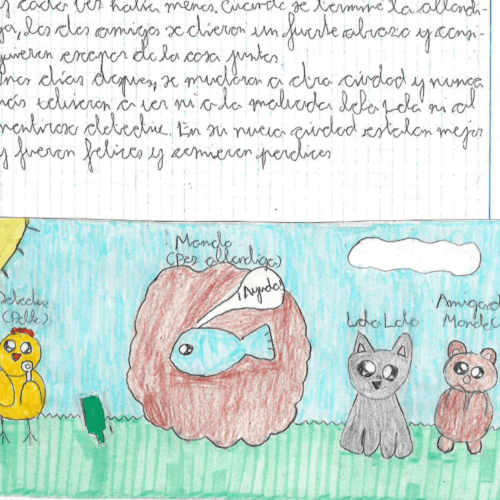 y cada vez había menos. Cuando se terminó la albóndi-
ga, los dos amigos se dieron un fuerte abrazo y consi-
guieron escapar de la casa juntos.
días después, se mudaron a otra ciudad y nunca
más volvieron a ver ni a la malvada loba Lola ni al
mentiroso detective. En su nueva ciudad estaban mejor
y fueron felices y comieron perdices
Detective
Mando
(Pez albóndiga)
¡Ayuda!
Loba Lola
Amigo de